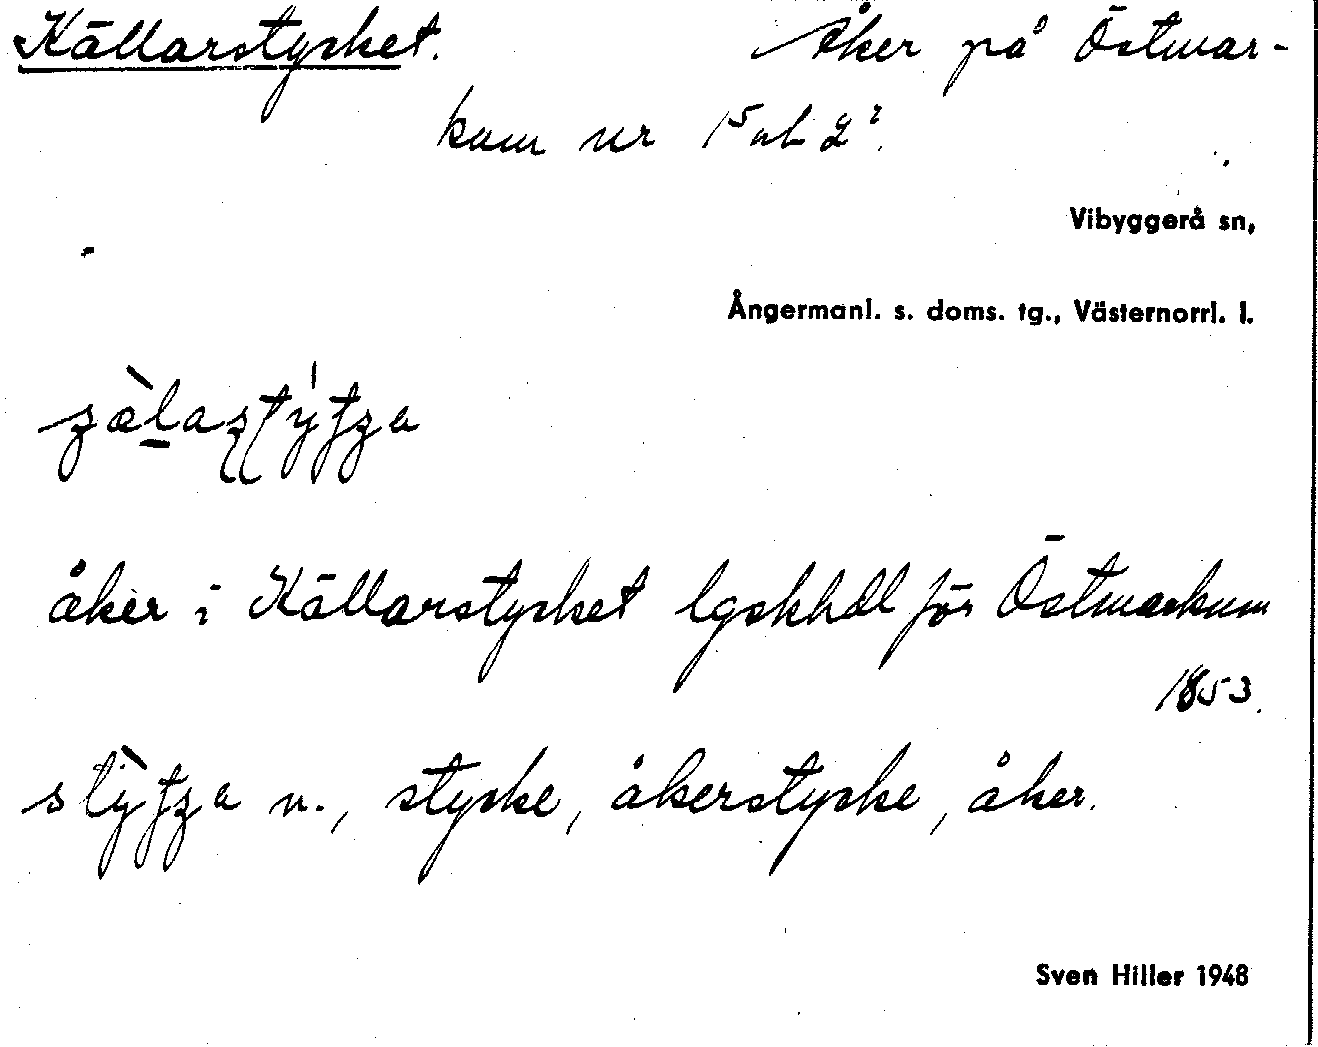 Källarstycket. Åker på Östmar-
kum nr 1⁵ och 2².
Vibyggerå sn,
Ångermanl. s. doms. tg., Västernorrl. l.
åker i Källarstycket lgskhdl för Östmarkum
1853.
n., stycke, åkerstycke, åker.
Sven Hiller 1948